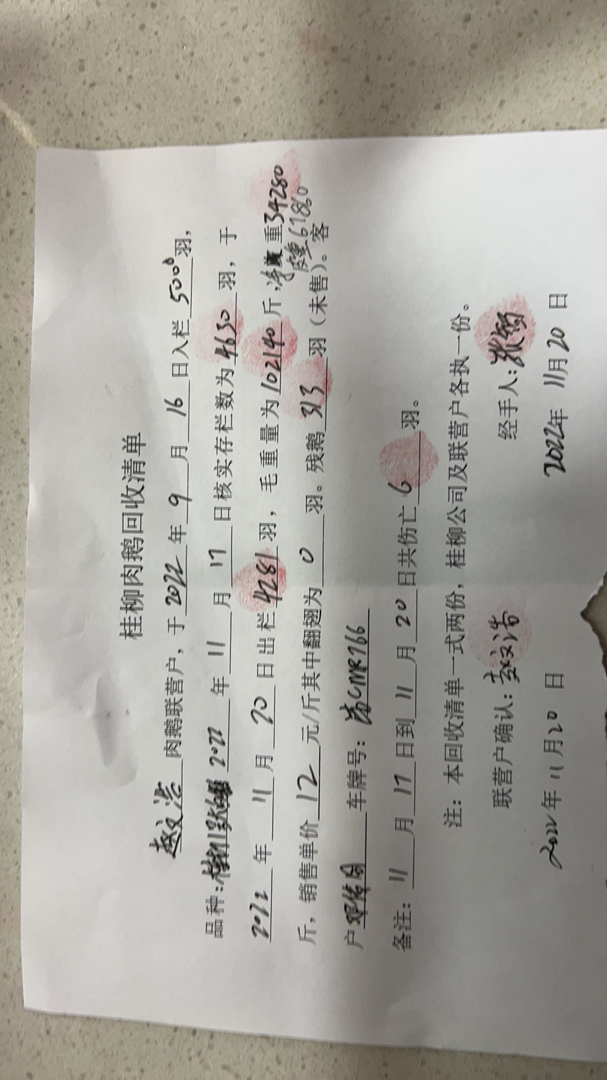 桂柳肉鹅回收清单
赵文浩 肉鹅联营户，于 2022 年 9 月 16 日入栏 5000 羽，
品种： 2022 年 11 月 17 日核实存栏数为 4630 羽，于
2022 年 11 月 20 日出栏 4281 羽，毛重量为 102140 斤，净重 34280
皮重 67860
斤，销售单价 12 元/斤其中翻翅为 0 羽。残鹅 313 羽（未售）。客
户 车牌号：
备注： 11 月 17 日到 11 月 20 日共伤亡 6 羽。
注：本回收清单一式两份，桂柳公司及联营户各执一份。
联营户确认：赵文浩 经手人：张
2022年 11月20 日 2022年 11月20 日